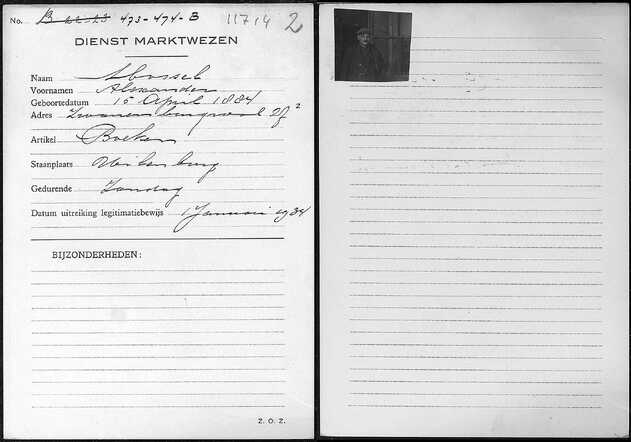 No. B 473-474-B 11714 2
DIENST MARKTWEZEN
Naam
Voornamen Alexander
Geboortedatum 15 April 1884
Adres Zwanenburgwal
Artikel Boeken
Staanplaats Uilenburg
Gedurende Zondag
Datum uitreiking legitimatiebewijs 1 Januari 1934
BIJZONDERHEDEN:
Z. O. Z.